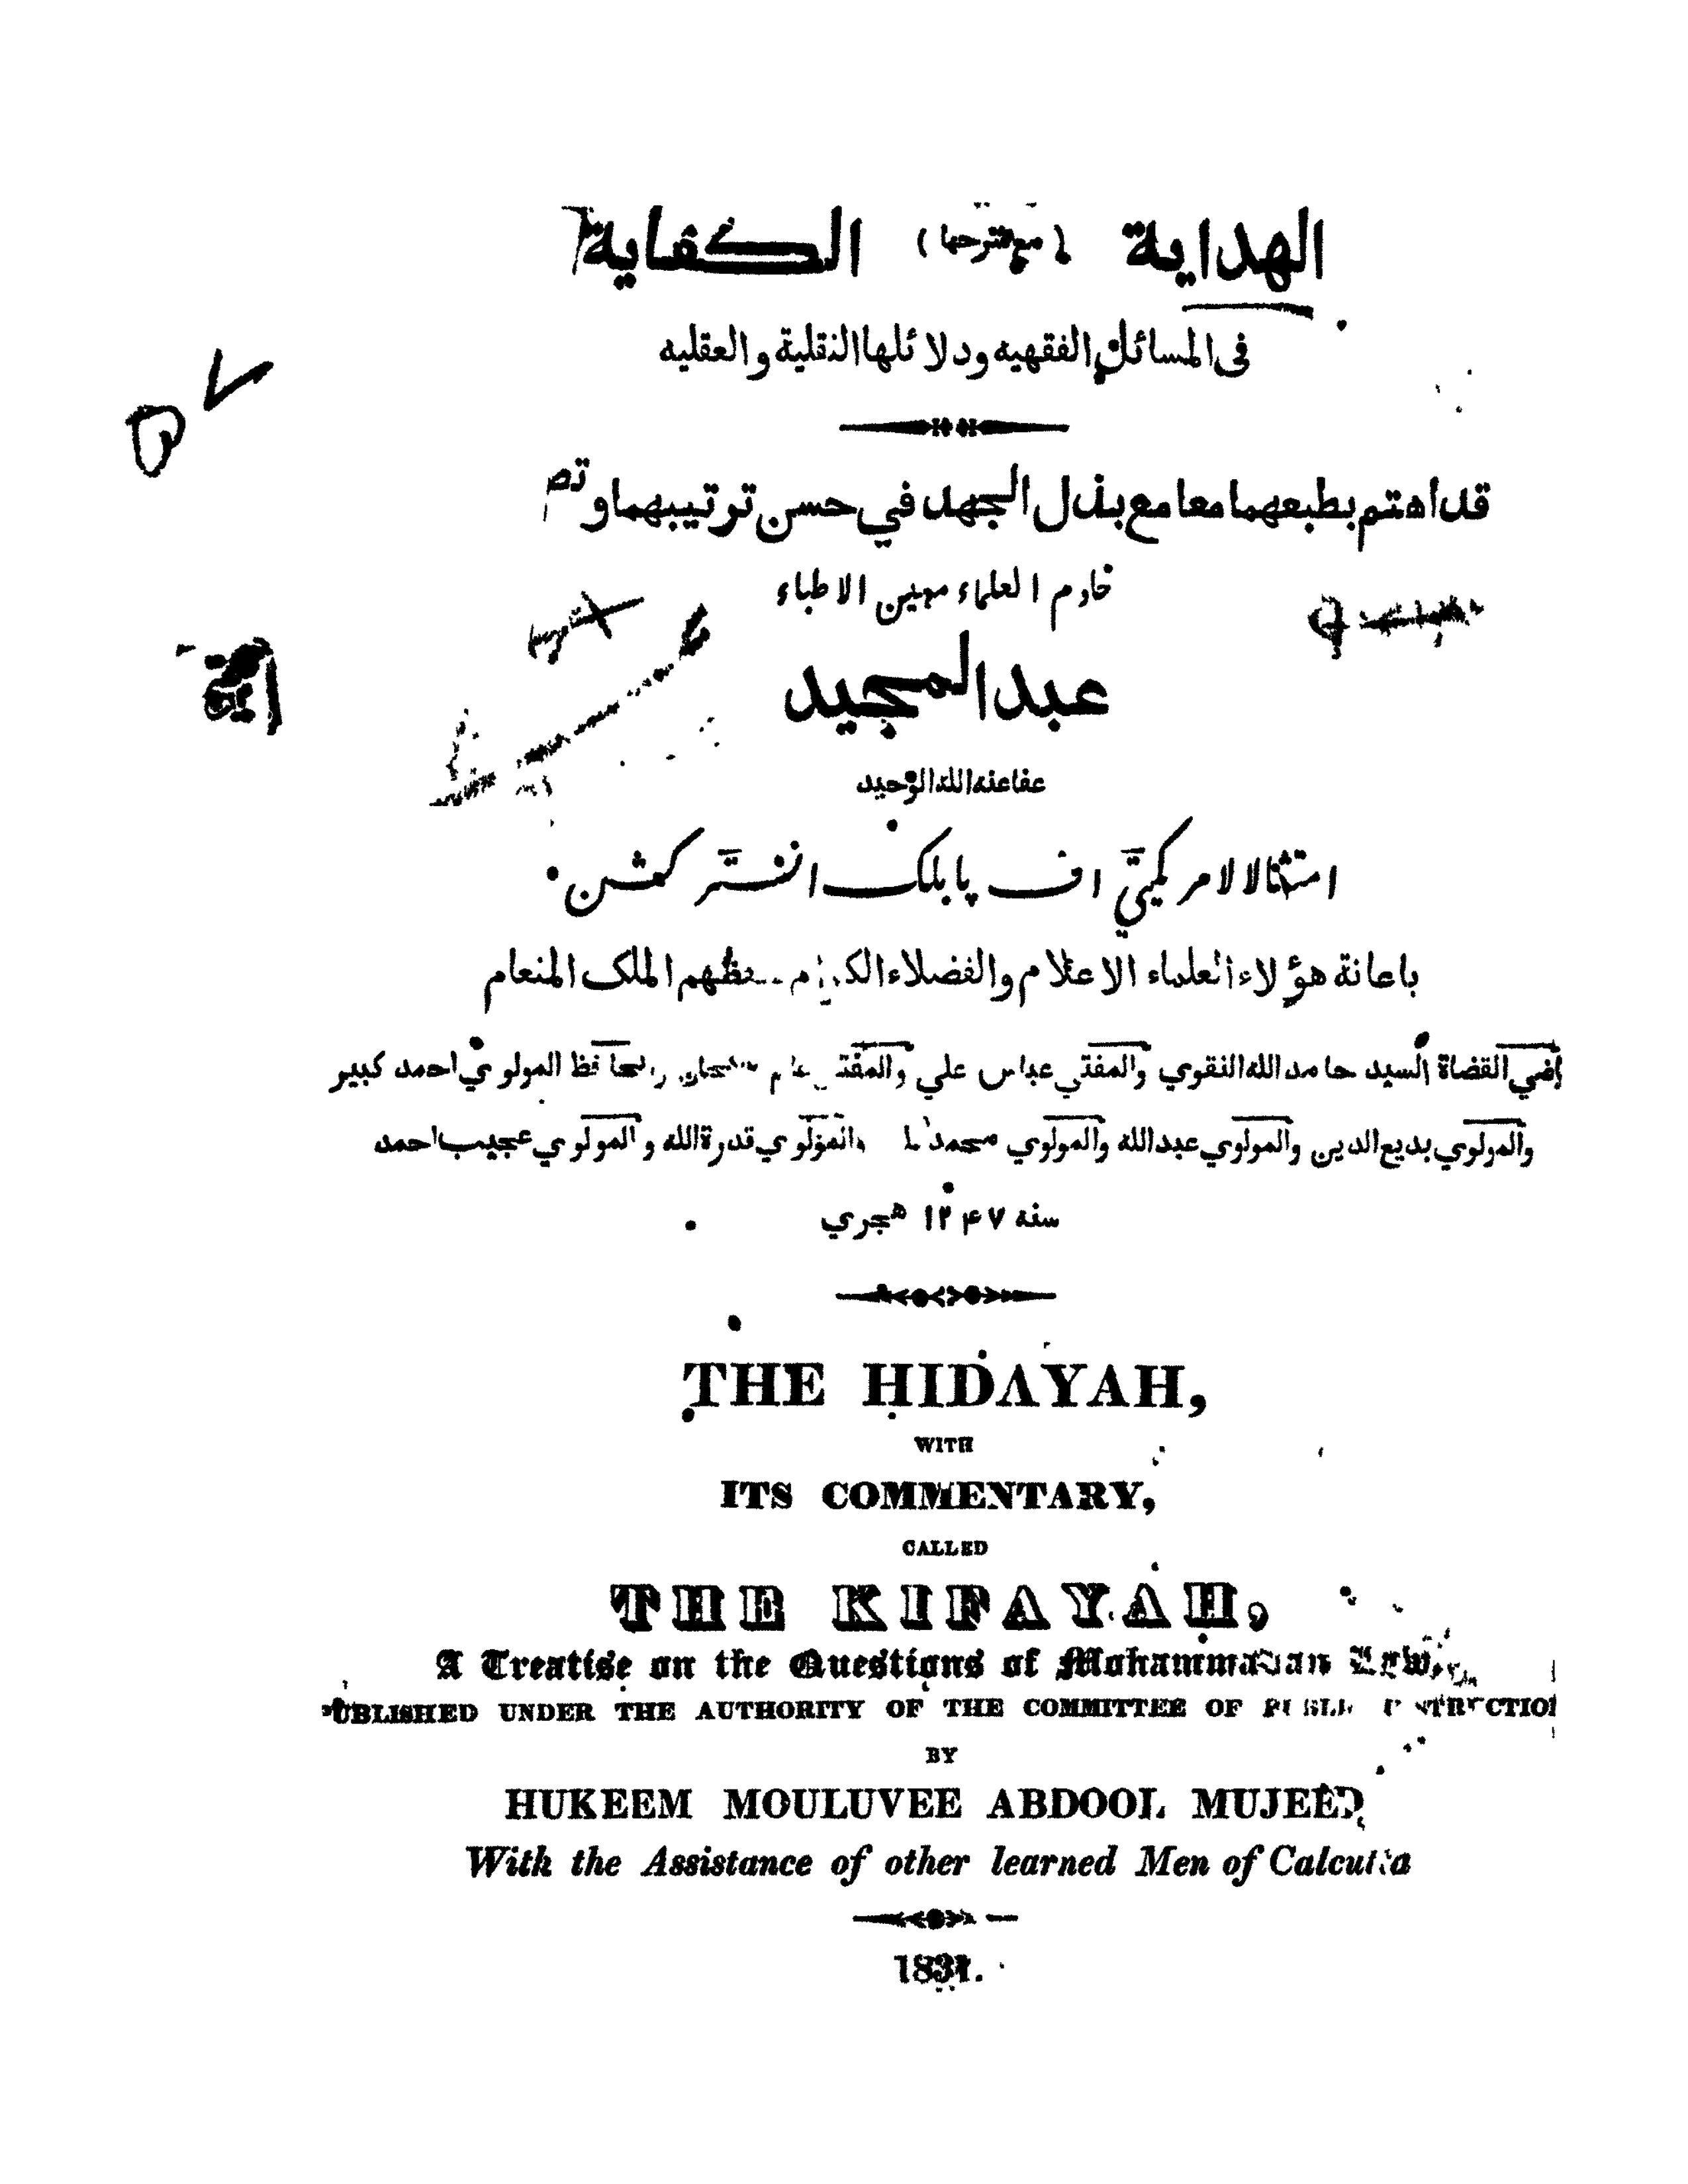 الهداية (مع شرحها) الكفاية
فى المسائل الفقهيه ودلائلها النقلية والعقليه
قد أهتم بطبعهما معا مع بذل الجهد في حسن ترتيبهما و
خادم العلماء مهين الاطباء
عبد المجيد
عفا عنه الله الوحيد
امتثالا لامر كميتي اف پابلک انسترکشن
باعانة هؤلاء العلماء الاعلام والفضلاء الملک المنعام
القضاة السيد حامد الله النقوي والمفتي عباس علي المولوي احمد كبير
والمولوي بديع الدين والمولوي عبد الله والمولوي محمد والمولوي قدرة الله والمولوي عجيب احمد
سنه ۱۲۴۷ هجري
THE HIDAYAH,
WITH
ITS COMMENTARY,
CALLED
THE KIFAYAH,
A Treatise on the Questions of Mohammadan Law,
PUBLISHED UNDER THE AUTHORITY OF THE COMMITTEE OF PUBLIC INSTRUCTION
BY
HUKEEM MOULUVEE ABDOOL MUJEED
With the Assistance of other learned Men of Calcutta
1831.